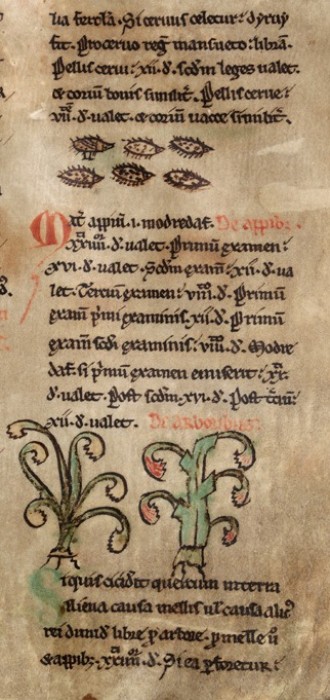 lia ferola. Si ceruus celetur: dyrwy
fit. Pro ceruo reg̃ mansueto: librã.
Pellis cerui: xii. d. scdm leges ualet.
& corium bouis similit̃. Pellis cerue:
viii. d. ualet. & corium uacce similit̃.
Mat̃ appiũ. i. modredaf. De appib;.
xxiiii. d. ualet. Primũ examen:
xvi. d. ualet. Scdm exam̃: xii. d. ua
let. Tercium examen: viii. d. Primũ
exam̃ p̃mi examinis. xii. d. Primũ
exam̃ scdi examinis: viii. d. Modre
daf. si p̃mũ examen emiserit: xx.
d. ualet. Post scdm. xvi. d. Post t̃ciũ:
xii. d. ualet. De arboribus.
Siquis ciderit quercum in terra
aliena causa mellis ul' causa alic'
rei dimid' libre p arbore. p melle ũ
& appib; xxiiii. d. Si ea pforetur: